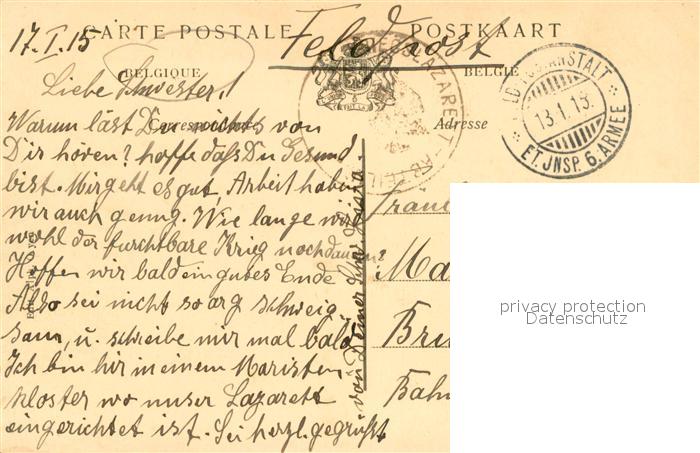 CARTE POSTALE
POSTKAART
Feldpost
17.I.15
BELGIQUE
BELGIË
Correspondance
Adresse
Liebe Schwester!
Warum läst Du nichts von
Dir hören? hoffe daß Du Gesund
bist. Mir geht es gut, Arbeit haben
wir auch genug. Wie lange wird
wohl der furchtbare Krieg noch dauern?
Hoffen wir bald ein gutes Ende
Also sei nicht so arg schweig
sam, u. schreibe mir mal bald
Ich bin hir in einem Maristen
Kloster wo unser Lazarett
eingerichtet ist. Sei herzl. gegrüßt
von Deiner
ET. JNSP. 6. ARMEE
LAZARETT
Ma
Bahn
privacy protection
Datenschutz